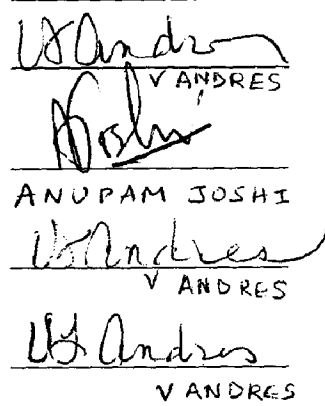 VJ Andres
V ANDRES
AJoshi
ANUPAM JOSHI
VJ Andres
V ANDRES
VJ Andres
V ANDRES